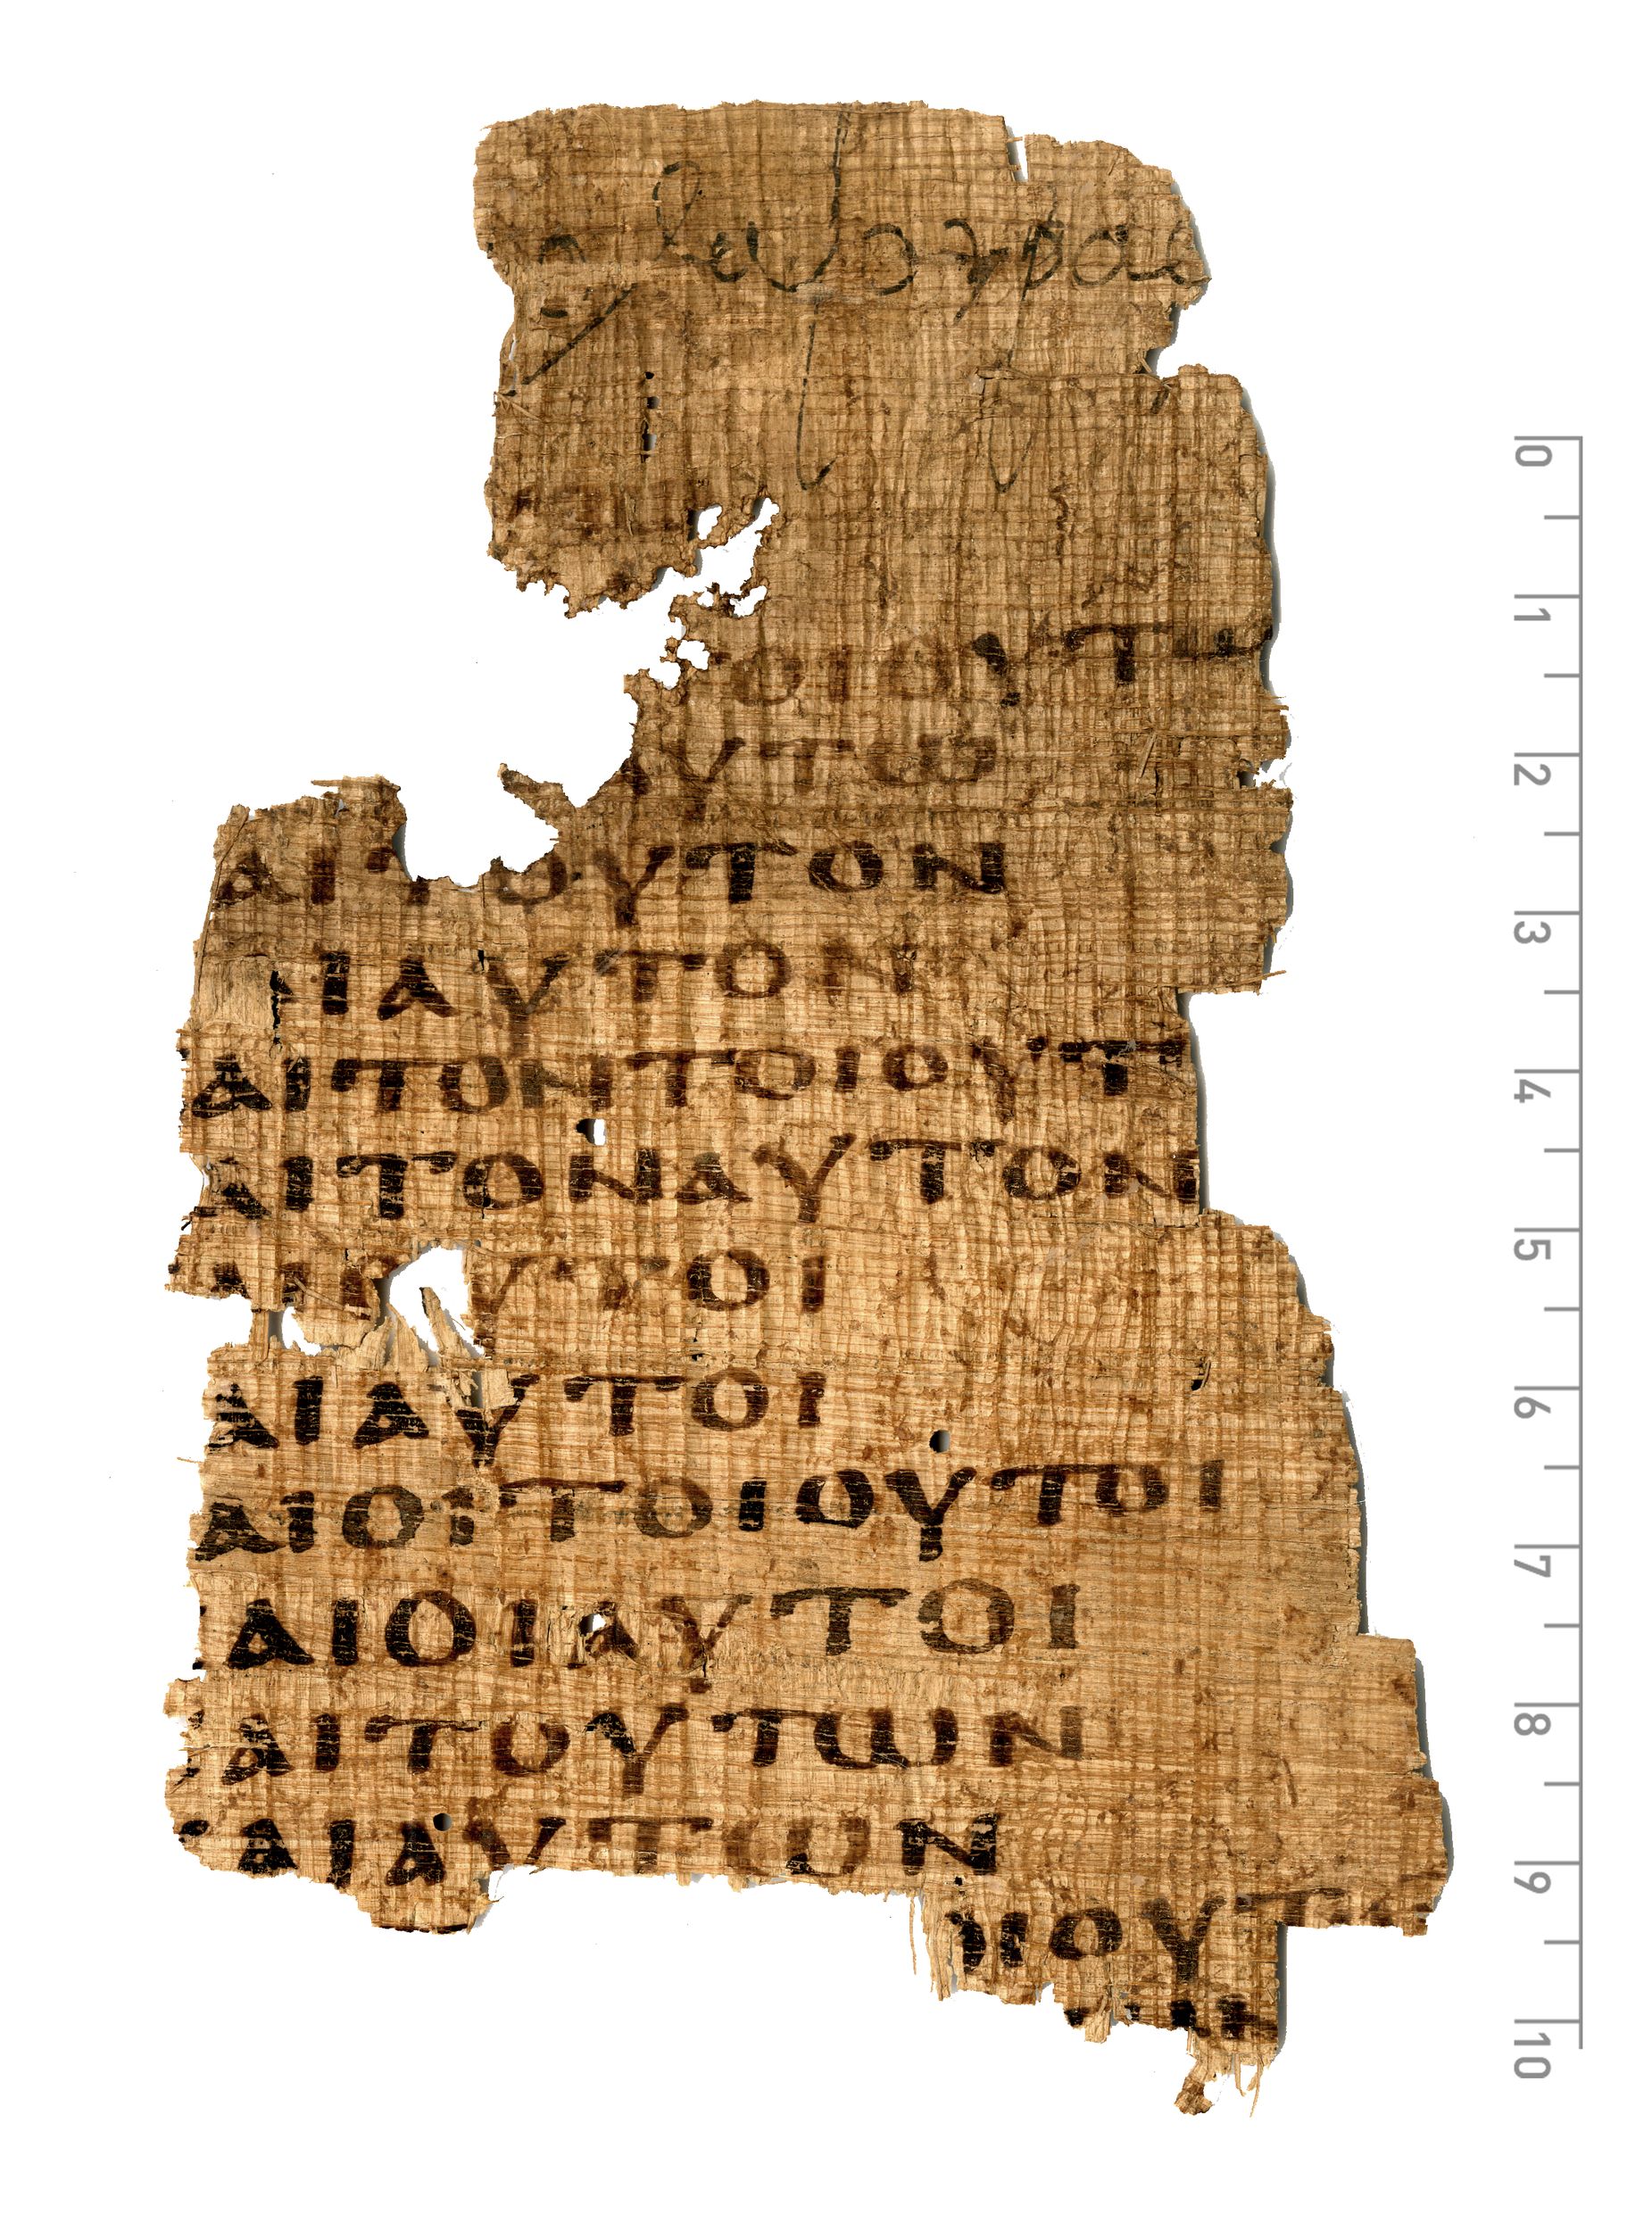 ΟΙΟΥΤ
ΥΤω
ΑΙΤΟΥΤΟΝ
ΑΙΑΥΤΟΝ
ΑΙΤΟΝΤΟΙΟΥΤ
ΑΙΤΟΝΑΥΤΟΝ
ΥΤΟΙ
ΑΙΑΥΤΟΙ
ΑΙΟΙΤΟΙΟΥΤΟΙ
ΑΙΟΙΑΥΤΟΙ
ΑΙΤΟΥΤωΝ
ΑΙΑΥΤωΝ
ΙΟΥΤ
0
1
2
3
4
5
6
7
8
9
10